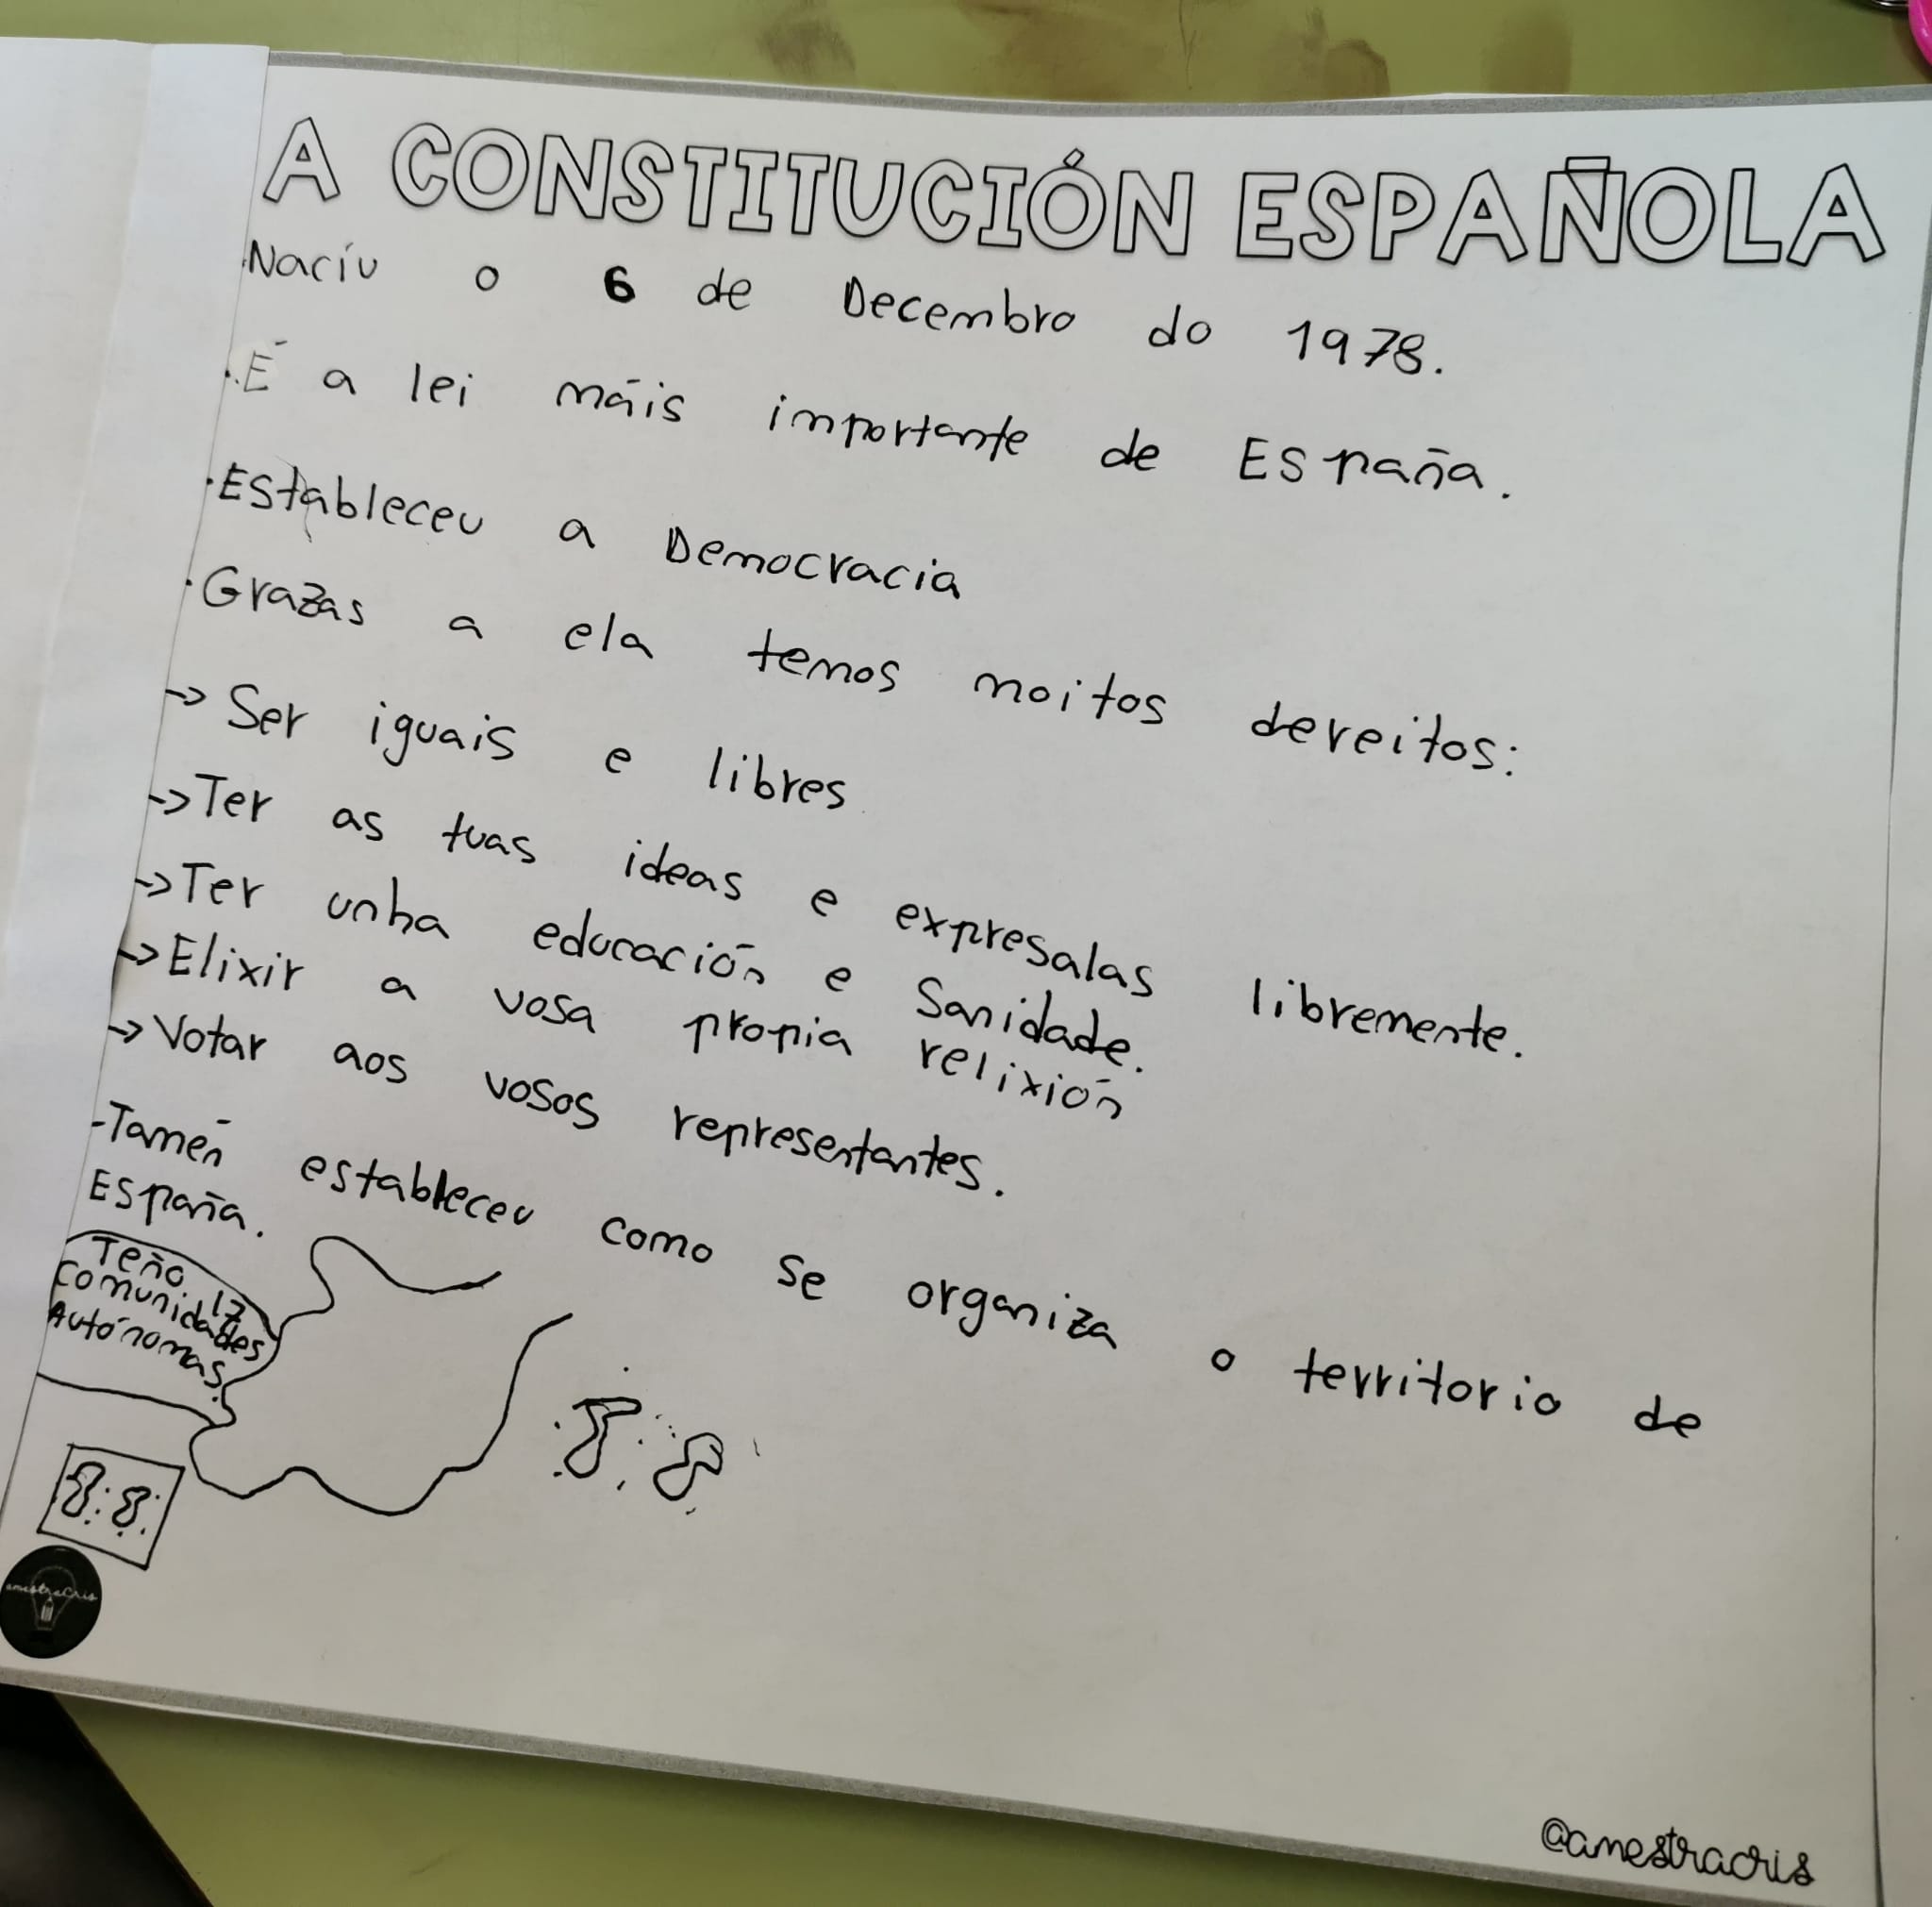 A CONSTITUCIÓN ESPAÑOLA
·Naciu o 6 de Decembro do 1978.
·É a lei máis importante de España.
·Estableceu a Democracia
·Grazas a ela temos moitos dereitos:
->Ser iguais e libres
->Ter as tuas ideas e expresalas libremente.
->Ter unha educación e Sanidade.
->Elixir a vosa propia relixión
->Votar aos vosos representantes.
-Tamén estableceu como se organiza o territorio de
España.
Teño 17
comunidades
Autónomas.
amestraCris
@amestracris